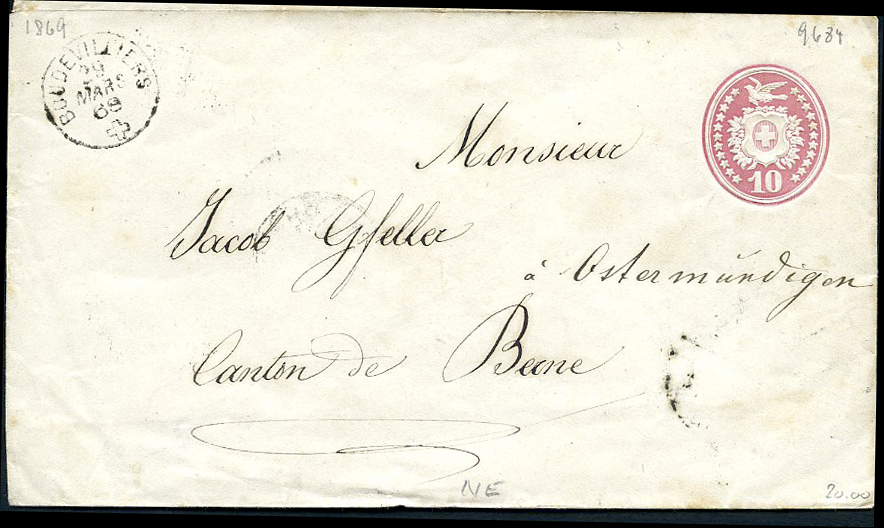 1869
9684
BOUDEVILLIERS
29
MARS
69
10
Monsieur
Jacob Gfeller
à Ostermundigen
Canton de Berne
NE
20.00